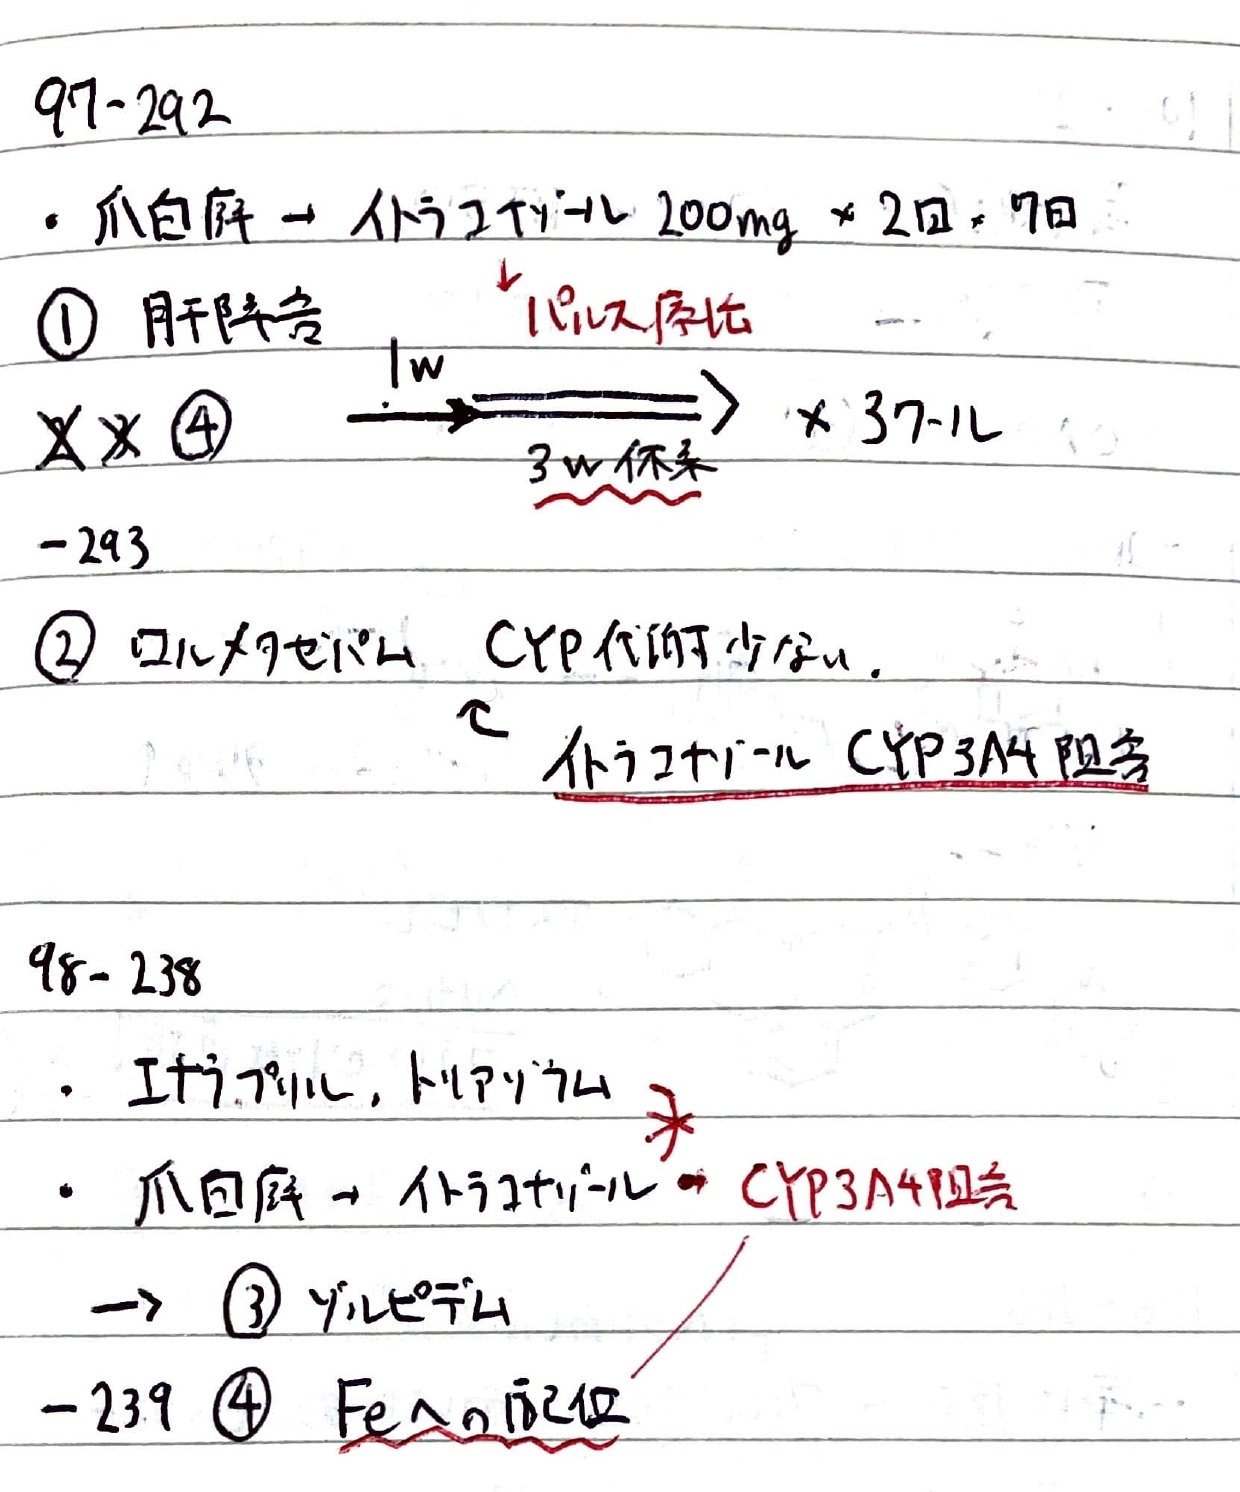 97-292
・爪白癬 → イトラコナゾール 200mg × 2回 × 7日
① 肝障害 ↓パルス療法
1w
④ × 3クール
3w 休薬
-293
② ロルメタゼパム CYP代謝少ない.
イトラコナゾール CYP3A4 阻害
98-238
・エナラプリル, トリアゾラム
・爪白癬 → イトラコナゾール → CYP3A4阻害
→ ③ ゾルピデム
-239 ④ Feへの配位